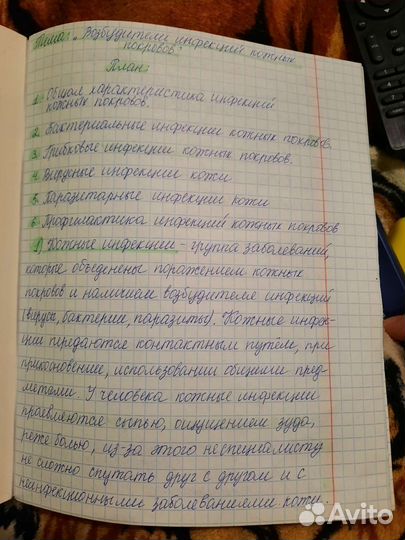 Тема: "Возбудители инфекций кожных
покровов".
План:
1. Общая характеристика инфекций
кожных покровов.
2. Бактериальные инфекции кожных покровов.
3. Грибковые инфекции кожных покровов.
4. Вирусные инфекции кожи
5. Паразитарные инфекции кожи
6. Профилактика инфекций кожных покровов
1) Кожные инфекции - группа заболеваний,
которые объеденены поражением кожных
покровов и наличием возбудителя инфекций
(вирусы, бактерии, паразиты). Кожные инфек-
ции передаются контактным путём, при
прикосновение, использовании общими пред-
метами. У человека кожные инфекции
проявляются сыпью, ощущением зуда,
реже болью, из-за этого неспециалисту
не сложно спутать друг с другом и с
неинфекционными заболеваниями кожи.
Avito